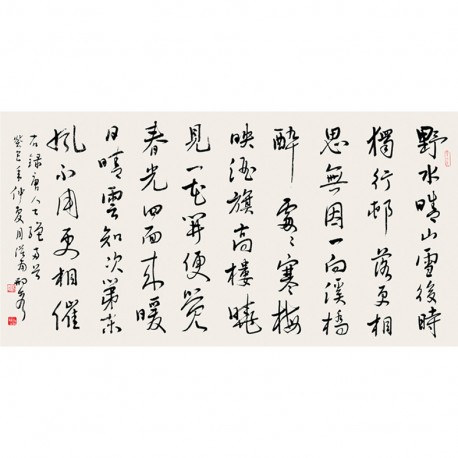 野水晴山雪後時
獨行邨落更相
思無因一向溪橋
醉處々寒梅
映酒旗高樓曉
見一花開便覺
春光四面來暖
日晴雲知次第東
風不用更相催
右録唐人
癸巳年仲夏月